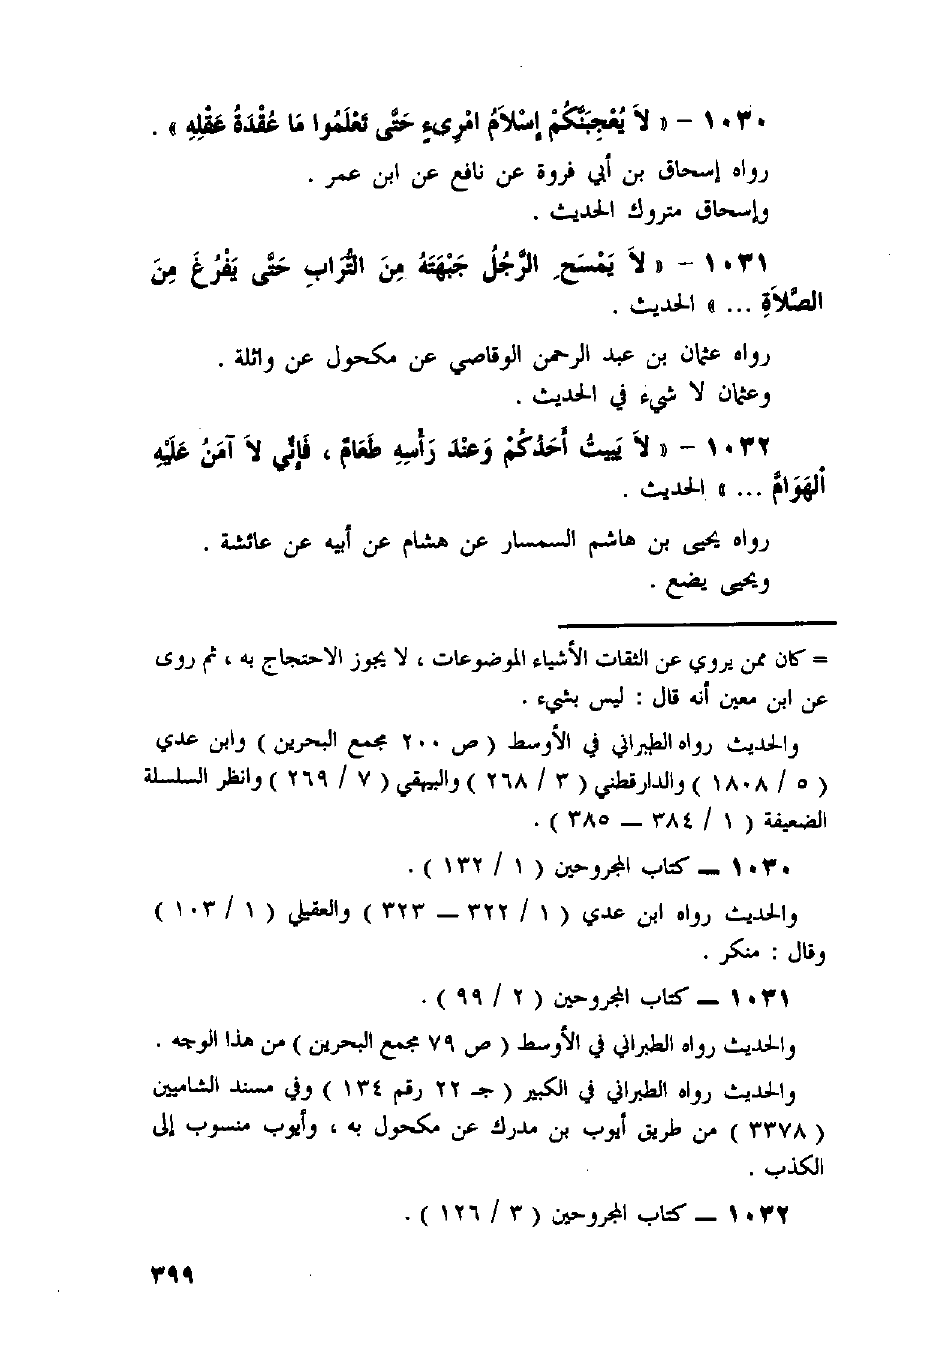 ١٠٣٠ – « لاَ يُعْجِبَنَّكُمْ إِسْلاَمُ امْرِىءٍ حَتَّى تَعْلَمُوا مَا عُقْدَةُ عَقْلِهِ » .
رواه إسحاق بن أبي فروة عن نافع عن ابن عمر .
وإسحاق متروك الحديث .
١٠٣١ – « لاَ يَمْسَحِ الرَّجُلُ جَبْهَتَهُ مِنَ التُّرَابِ حَتَّى يَفْرُغَ مِنَ
الصَّلاَةِ ... » الحديث .
رواه عثمان بن عبد الرحمن الوقاصي عن مكحول عن واثلة .
وعثمان لا شيء في الحديث .
١٠٣٢ – « لاَ يَبِيتُ أَحَدُكُمْ وَعِنْدَ رَأْسِهِ طَعَامٌ ، فَإِنِّي لاَ آمَنُ عَلَيْهِ
الْهَوَامَّ ... » الحديث .
رواه يحيى بن هاشم السمسار عن هشام عن أبيه عن عائشة .
ويحيى يضع .
= كان ممن يروي عن الثقات الأشياء الموضوعات ، لا يجوز الاحتجاج به ، ثم روى
عن ابن معين أنه قال : ليس بشيء .
والحديث رواه الطبراني في الأوسط ( ص ٢٠٠ مجمع البحرين ) وابن عدي
( ٥ / ١٨٠٨ ) والدارقطني ( ٣ / ٢٦٨ ) والبيهقي ( ٧ / ٢٦٩ ) وانظر السلسلة
الضعيفة ( ١ / ٣٨٤ – ٣٨٥ ) .
١٠٣٠ – كتاب المجروحين ( ١ / ١٣٢ ) .
والحديث رواه ابن عدي ( ١ / ٣٢٢ – ٣٢٣ ) والعقيلي ( ١ / ١٠٣ )
وقال : منكر .
١٠٣١ – كتاب المجروحين ( ٢ / ٩٩ ) .
والحديث رواه الطبراني في الأوسط ( ص ٧٩ مجمع البحرين ) من هذا الوجه .
والحديث رواه الطبراني في الكبير ( جـ ٢٢ رقم ١٣٤ ) وفي مسند الشاميين
( ٣٣٧٨ ) من طريق أيوب بن مدرك عن مكحول به ، وأيوب منسوب إلى
الكذب .
١٠٣٢ – كتاب المجروحين ( ٣ / ١٢٦ ) .
٣٩٩